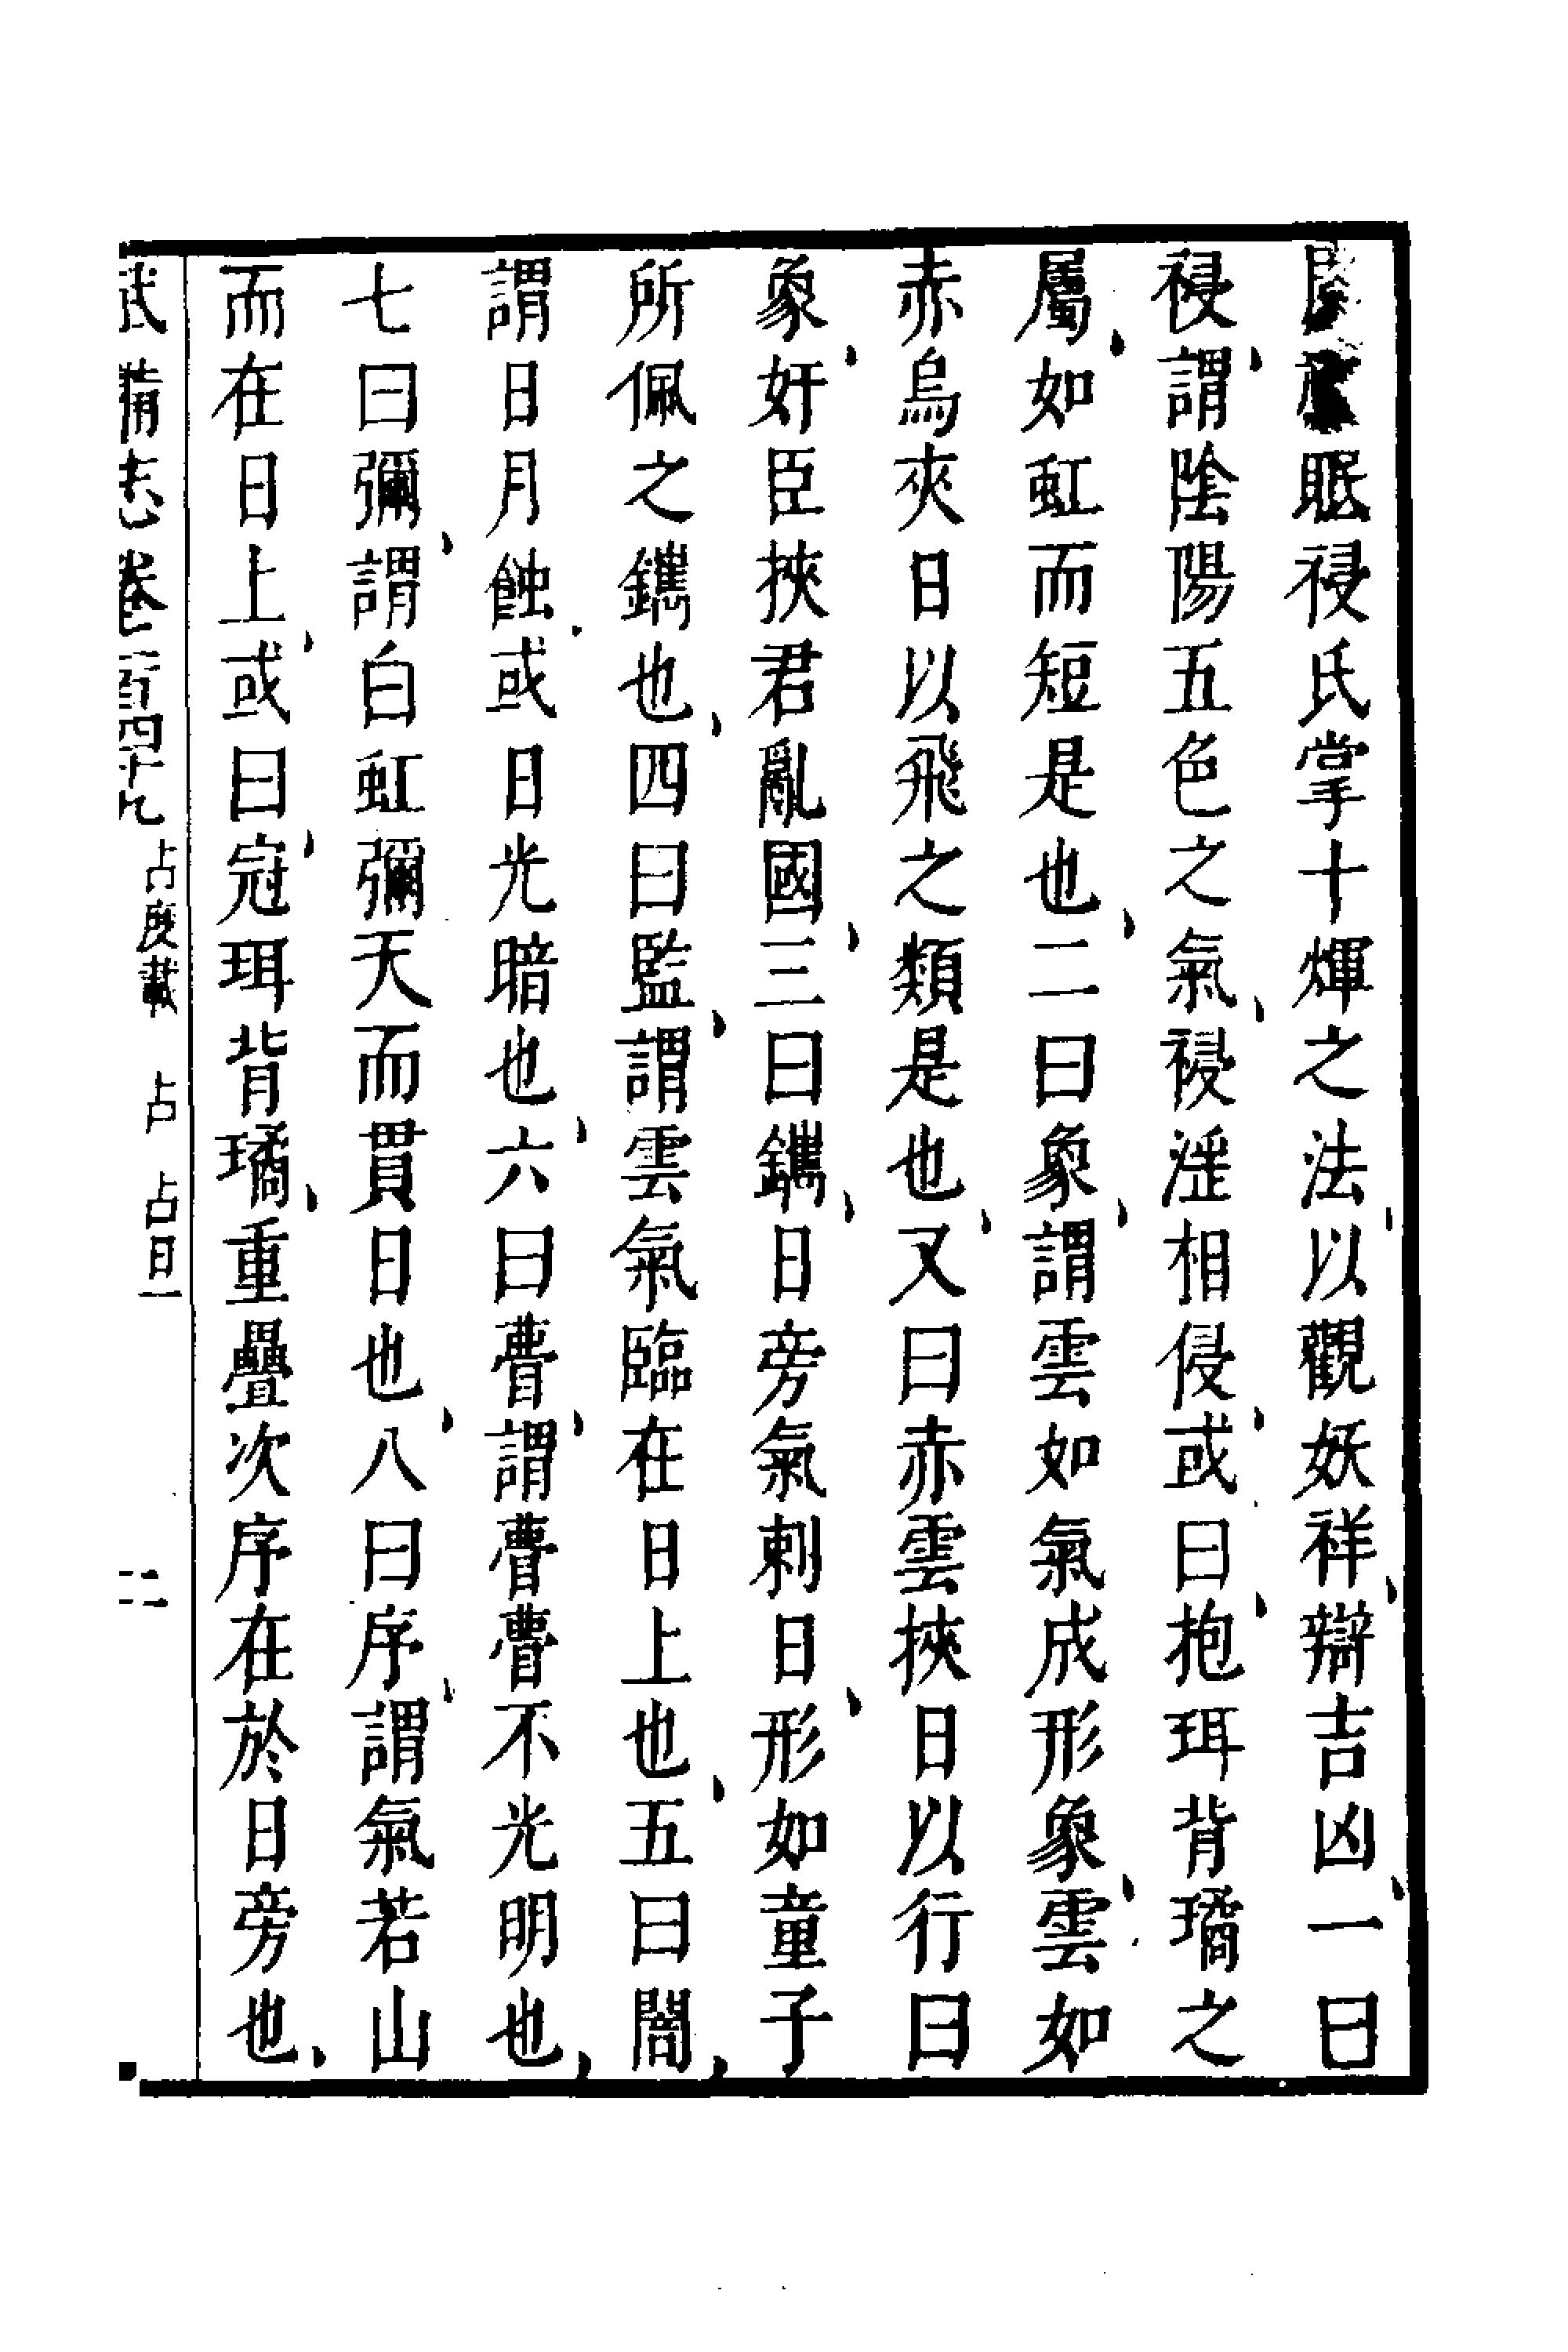 眡祲氏掌十煇之法以觀妖祥辯吉凶一曰
祲謂陰陽五色之氣祲淫相侵或曰抱珥背璚之
屬如虹而短是也二曰象謂雲如氣成形象雲如
赤烏夾日以飛之類是也又曰赤雲挾日以行曰
象奸臣挾君亂國三曰鑴日旁氣刺日形如童子
所佩之鑴也四曰監謂雲氣臨在日上也五曰闇
謂日月蝕或日光暗也六曰瞢謂瞢瞢不光明也
七曰彌謂白虹彌天而貫日也八曰序謂氣若山
而在日上或曰冠珥背璚重疊次序在於日旁也
武備志卷一百四十九 占度載 占 占日一 二